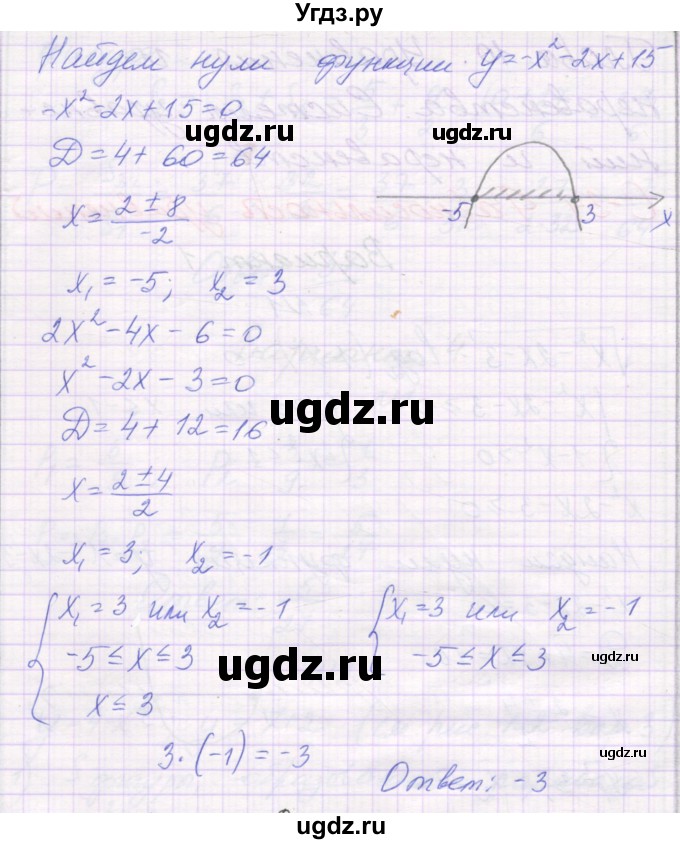 Угдз.ру
Найдем нули функции y=-x²-2x+15
-x²-2x+15=0
ugdz.ru
Д=4+60=64
x=(2±8)/(-2)
-5 3 x
x₁=-5; x₂=3
2x²-4x-6=0
x²-2x-3=0
ugdz.ru
Д=4+12=16
ugdz.ru
x=(2±4)/2
x₁=3; x₂=-1
{x₁=3 или x₂=-1
-5≤x≤3
x≤3
{x₁=3 или x₂=-1
-5≤x≤3
ugdz.ru
ugdz.ru
3·(-1)=-3
ugdz.ru
Ответ: -3
ugdz.ru
ugdz.ru